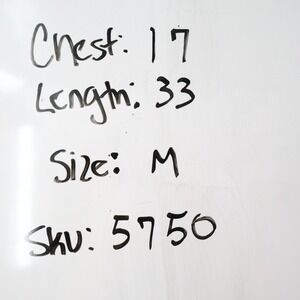 Chest: 17
Length: 33
Size: M
SKU: 5750